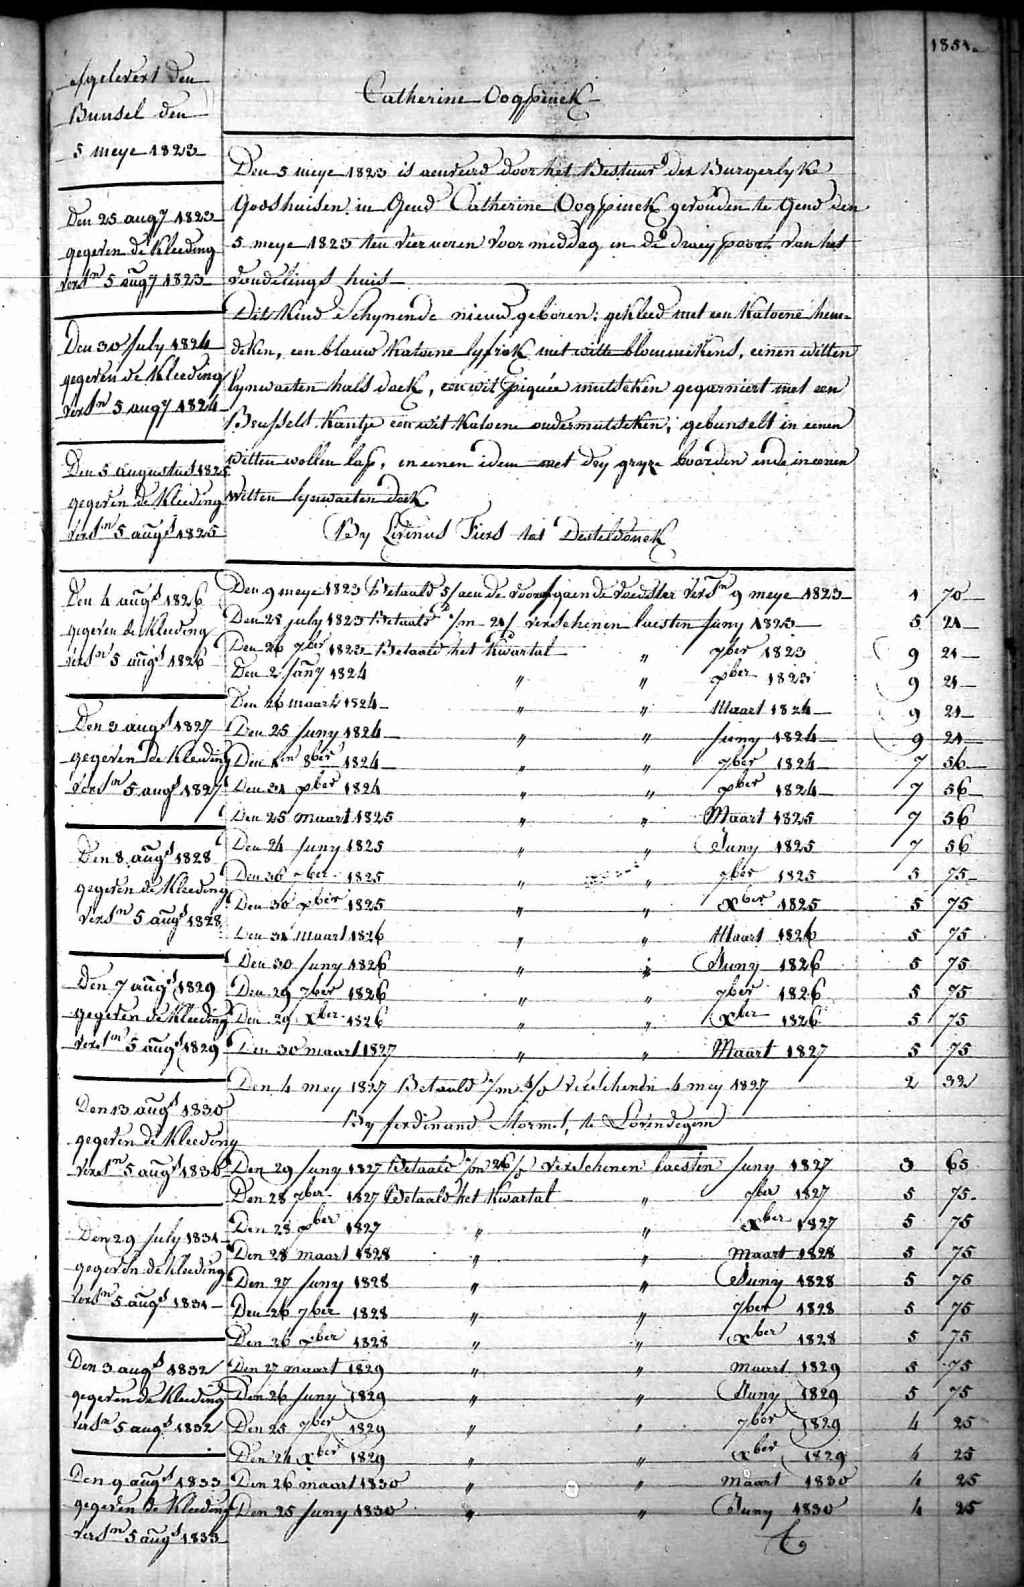 1851.
afgelevert den
Bunsel den
5 meye 1823
Den 25 augy 1823
gegeven de Kleeding
vers.n 5 augy 1823
Den 30 July 1824
gegeven de Kleeding
vers.n 5 augy 1824
Den 5 augustus 1825
gegeven de Kleeding
vers.n 5 augs 1825
Den 4 augs 1826
gegeven de Kleeding
vers.n 5 augs 1826
Den 3 augs 1827
gegeven de Kleeding
vers.n 5 augs 1827
Den 8 augs 1828
gegeven de Kleeding
vers.n 5 augs 1828
Den 7 augs 1829
gegeven de Kleeding
vers.n 5 augs 1829
Den 13 augs 1830
gegeven de Kleeding
vers.n 5 augs 1830
Den 29 July 1831
gegeven de Kleeding
vers.n 5 augs 1831
Den 3 augs 1832
gegeven de Kleeding
vers.n 5 augs 1832
Den 9 augs 1833
gegeven de Kleeding
vers.n 5 augs 1833
Catherine Oogpinck
Den 5 meye 1823 is aenveird door het Bestuur der Burgerlyke
Godshuisen in Gend Catherine Oogpinck gevonden te Gend den
5 meye 1823 ten vier uren voor middag in de draey poort van het
vondelings huis
Dit Kind Schynende nieuw geboren: gekleed met een Katoene hem-
deken, een blauw Katoene lyfrok met witte blommekens, eenen witten
lynwaeten hals doek, een wit piquée mutseken gegarniert met een
Brussels Kantje een wit Katoene ondermutseken; gebunselt in eenen
witten wollen lap, en eenen idem met dry gryze boorden ende in eenen
witten lynwaeten doek
By Livinus Fiers tot Desteldonck
Den 9 meye 1823 Betaald 5/ aen de voorgaende voedster vers.n 9 meye 1823 1 70
Den 25 july 1823 Betaald 1/m 21/ verschenen laesten Juny 1823 5 21
Den 26 7ber 1823 Betaald het Kwartal " 7ber 1823 9 21
Den 2 Jany 1824 " " xber 1823 9 21
Den 26 maart 1824 " " Maart 1824 9 21
Den 25 Juny 1824 " " Juny 1824 9 21
Den 1en 8ber 1824 " " 7ber 1824 7 56
Den 31 xber 1824 " " xber 1824 7 56
Den 25 maart 1825 " " Maart 1825 7 56
Den 24 Juny 1825 " " Juny 1825 7 56
Den 30 7ber 1825 " " 7ber 1825 5 75
Den 30 xber 1825 " " xber 1825 5 75
Den 31 Maart 1826 " " Maart 1826 5 75
Den 30 Juny 1826 " " Juny 1826 5 75
Den 29 7ber 1826 " " 7ber 1826 5 75
Den 29 Xber 1826 " " Xber 1826 5 75
Den 30 maart 1827 " " Maart 1827 5 75
Den 4 mey 1827 Betaald verschenen 4 mey 1827 2 32
By ferdinand Mormel, te Lovendegem
Den 29 Juny 1827 Betaald 1/m 26/ verschenen laesten Juny 1827 3 65
Den 28 7ber 1827 Betaald het Kwartal " 7ber 1827 5 75
Den 28 xber 1827 " " xber 1827 5 75
Den 28 maart 1828 " " maart 1828 5 75
Den 27 Juny 1828 " " Juny 1828 5 75
Den 26 7ber 1828 " " 7ber 1828 5 75
Den 26 xber 1828 " " xber 1828 5 75
Den 27 maart 1829 " " maart 1829 5 75
Den 26 Juny 1829 " " Juny 1829 5 75
Den 25 7ber 1829 " " 7ber 1829 4 25
Den 24 xber 1829 " " xber 1829 4 25
Den 26 maart 1830 " " maart 1830 4 25
Den 25 Juny 1830 " " Juny 1830 4 25